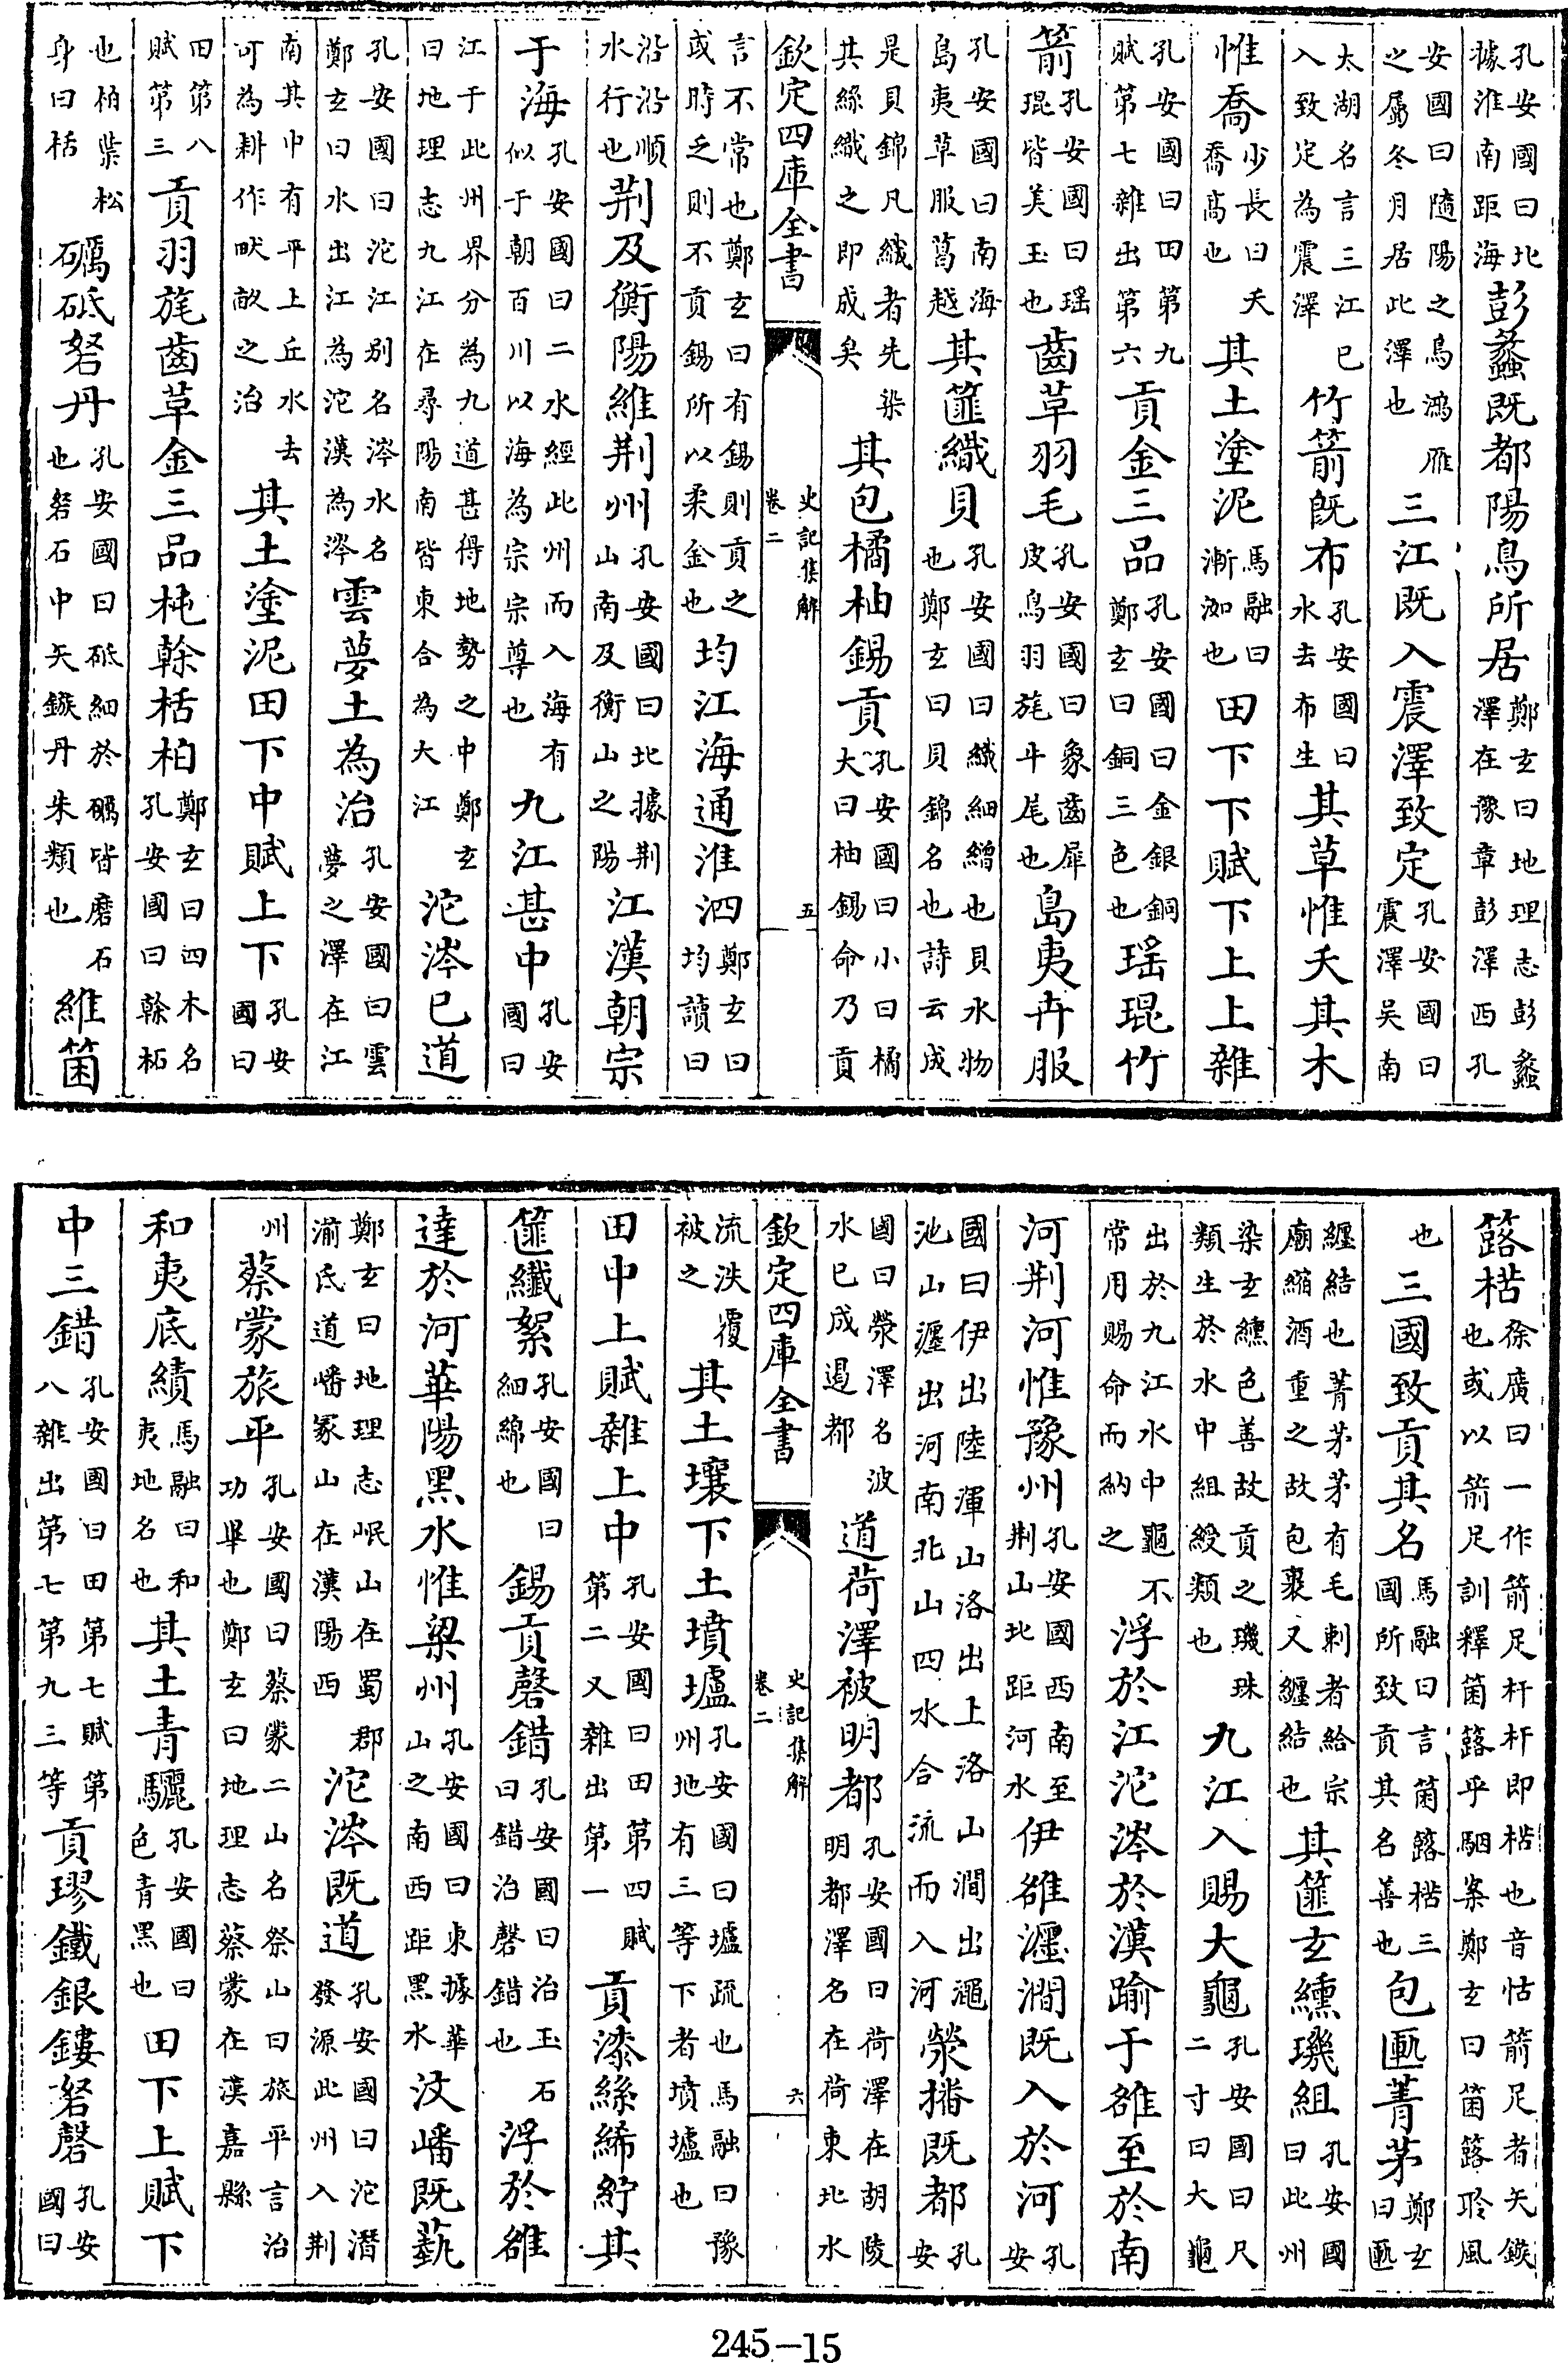 孔安國曰北據淮南距海彭蠡既都陽鳥所居鄭玄曰地理志彭蠡澤在豫章彭澤西孔
安國曰隨陽之鳥鴻雁之屬冬月居此澤也三江既入震澤致定孔安國曰震澤吳南
太湖名言三江已入致定為震澤竹箭既布孔安國曰水去布生其草惟夭其木
惟喬少長曰夭喬高也其土塗泥馬融曰漸洳也田下下賦下上上雜
孔安國曰田第九賦第七雜出第六貢金三品孔安國曰金銀銅鄭玄曰銅三色也瑶琨竹
箭孔安國曰瑶琨皆美玉也齒草羽毛孔安國曰象齒犀皮鳥羽旄牛尾也島夷卉服
孔安國曰南海島夷草服葛越其篚織貝孔安國曰織細繒也貝水物也鄭玄曰貝錦名也詩云成
是貝錦凡織者先染其絲織之即成矣其包橘柚錫貢孔安國曰小曰橘大曰柚錫命乃貢
欽定四庫全書 史記集解 卷二 五
言不常也鄭玄曰有錫則貢之或時乏則不貢錫所以柔金也均江海通淮泗鄭玄曰均讀曰
沿沿順水行也荆及衡陽維荆州孔安國曰北據荆山南及衡山之陽江漢朝宗
于海孔安國曰二水經此州而入海有似于朝百川以海為宗宗尊也九江甚中孔安國曰
江于此州界分為九道甚得地勢之中鄭玄曰地理志九江在尋陽南皆東合為大江沱涔已道
孔安國曰沱江别名涔水名鄭玄曰水出江為沱漢為涔雲夢土為治孔安國曰雲夢之澤在江
南其中有平上丘水去可為耕作畎畝之治其土塗泥田下中賦上下孔安國曰
田第八賦第三貢羽旄齒草金三品杶榦栝柏鄭玄曰四木名孔安國曰榦柘
也柏葉松身曰栝礪砥砮丹孔安國曰砥細於礪皆磨石也砮石中矢鏃丹朱類也維箘
簵楛徐廣曰一作箭足杆杆即楛也音怙箭足者矢鏃也或以箭足訓釋箘簵乎駰案鄭玄曰箘簵聆風
也三國致貢其名馬融曰言箘簵楛三國所致貢其名善也包匭菁茅鄭玄曰匭
纏結也菁茅茅有毛刺者給宗廟縮酒重之故包裹又纏結也其篚玄纁璣組孔安國曰此州
染玄纁色善故貢之璣珠類生於水中組綬類也九江入賜大龜孔安國曰尺二寸曰大龜
出於九江水中龜不常用賜命而納之浮於江沱涔於漢踰于雒至於南
河荆河惟豫州孔安國西南至荆山北距河水伊雒瀍澗既入於河孔安
國曰伊出陸渾山洛出上洛山澗出澠池山瀍出河南北山四水合流而入河滎播既都孔安
國曰滎澤名波水已成遏都道荷澤被明都孔安國曰荷澤在胡陵明都澤名在荷東北水
欽定四庫全書 史記集解 卷二 六
流泆覆被之其土壤下土墳壚孔安國曰壚疏也馬融曰豫州地有三等下者墳壚也
田中上賦雜上中孔安國曰田第四賦第二又雜出第一貢漆絲絺紵其
篚纖絮孔安國曰細綿也錫貢磬錯孔安國曰治玉石曰錯治磬錯也浮於雒
達於河華陽黑水惟梁州孔安國曰東據華山之南西距黑水汶嶓既蓺
鄭玄曰地理志岷山在蜀郡湔氐道嶓冢山在漢陽西沱涔既道孔安國曰沱潛發源此州入荆
州蔡蒙旅平孔安國曰蔡蒙二山名祭山曰旅平言治功畢也鄭玄曰地理志蔡蒙在漢嘉縣
和夷厎績馬融曰和夷地名也其土青驪孔安國曰色青黑也田下上賦下
中三錯孔安國曰田第七賦第八雜出第七第九三等貢璆鐵銀鏤砮磬孔安國曰
245-15